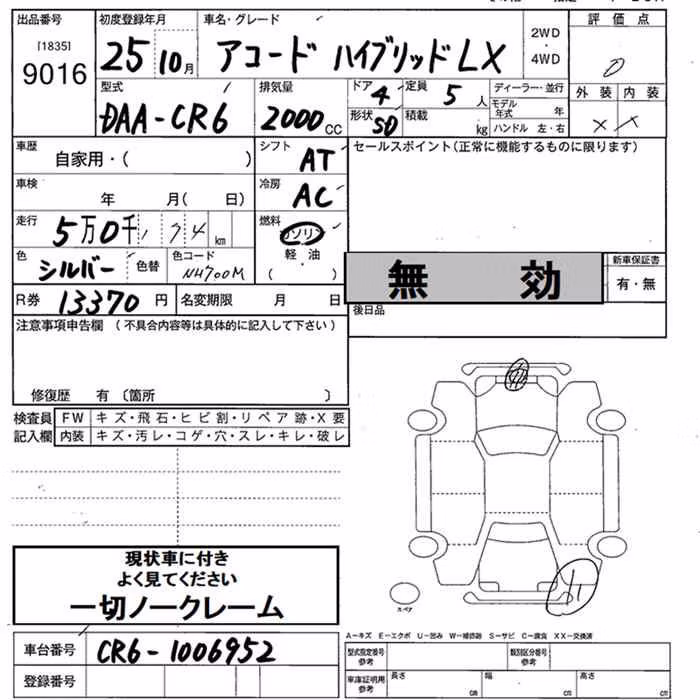 出品番号 初度登録年月 車名・グレード 評価点
[1835] 2WD
9016 25 10月 アコード ハイブリッド LX ・4WD 0
型式 排気量 ドア 4 定員 5人 ディーラー・並行 外装 内装
DAA-CR6 2000cc 形状 SD 積載 kg モデル年式 年 × ×
ハンドル 左・右
車歴 シフト セールスポイント(正常に機能するものに限ります)
自家用・( ) AT
車検 冷房
年 月( 日) AC
走行 燃料
5万0千 km ガソリン
色 色替 色コード 軽油 新車保証書
シルバー NH700M ( ) 無効 有・無
R券 13370円 名変期限 月 日 後日品
注意事項申告欄 (不具合内容等は具体的に記入して下さい)
修復歴 有 〔箇所 〕
検査員 FW キズ・飛石・ヒビ割・リペア跡・X要
記入欄 内装 キズ・汚レ・コゲ・穴・スレ・キレ・破レ
現状車に付き
よく見てください
一切ノークレーム
スペア
A-キズ E-エクボ U-凹み W-補修跡 S-サビ C-腐食 XX-交換済
車台番号 CR6-1006952 型式指定番号 参考 類別区分番号 参考
登録番号 車庫証明用 参考 長さ cm 幅 cm 高さ cm